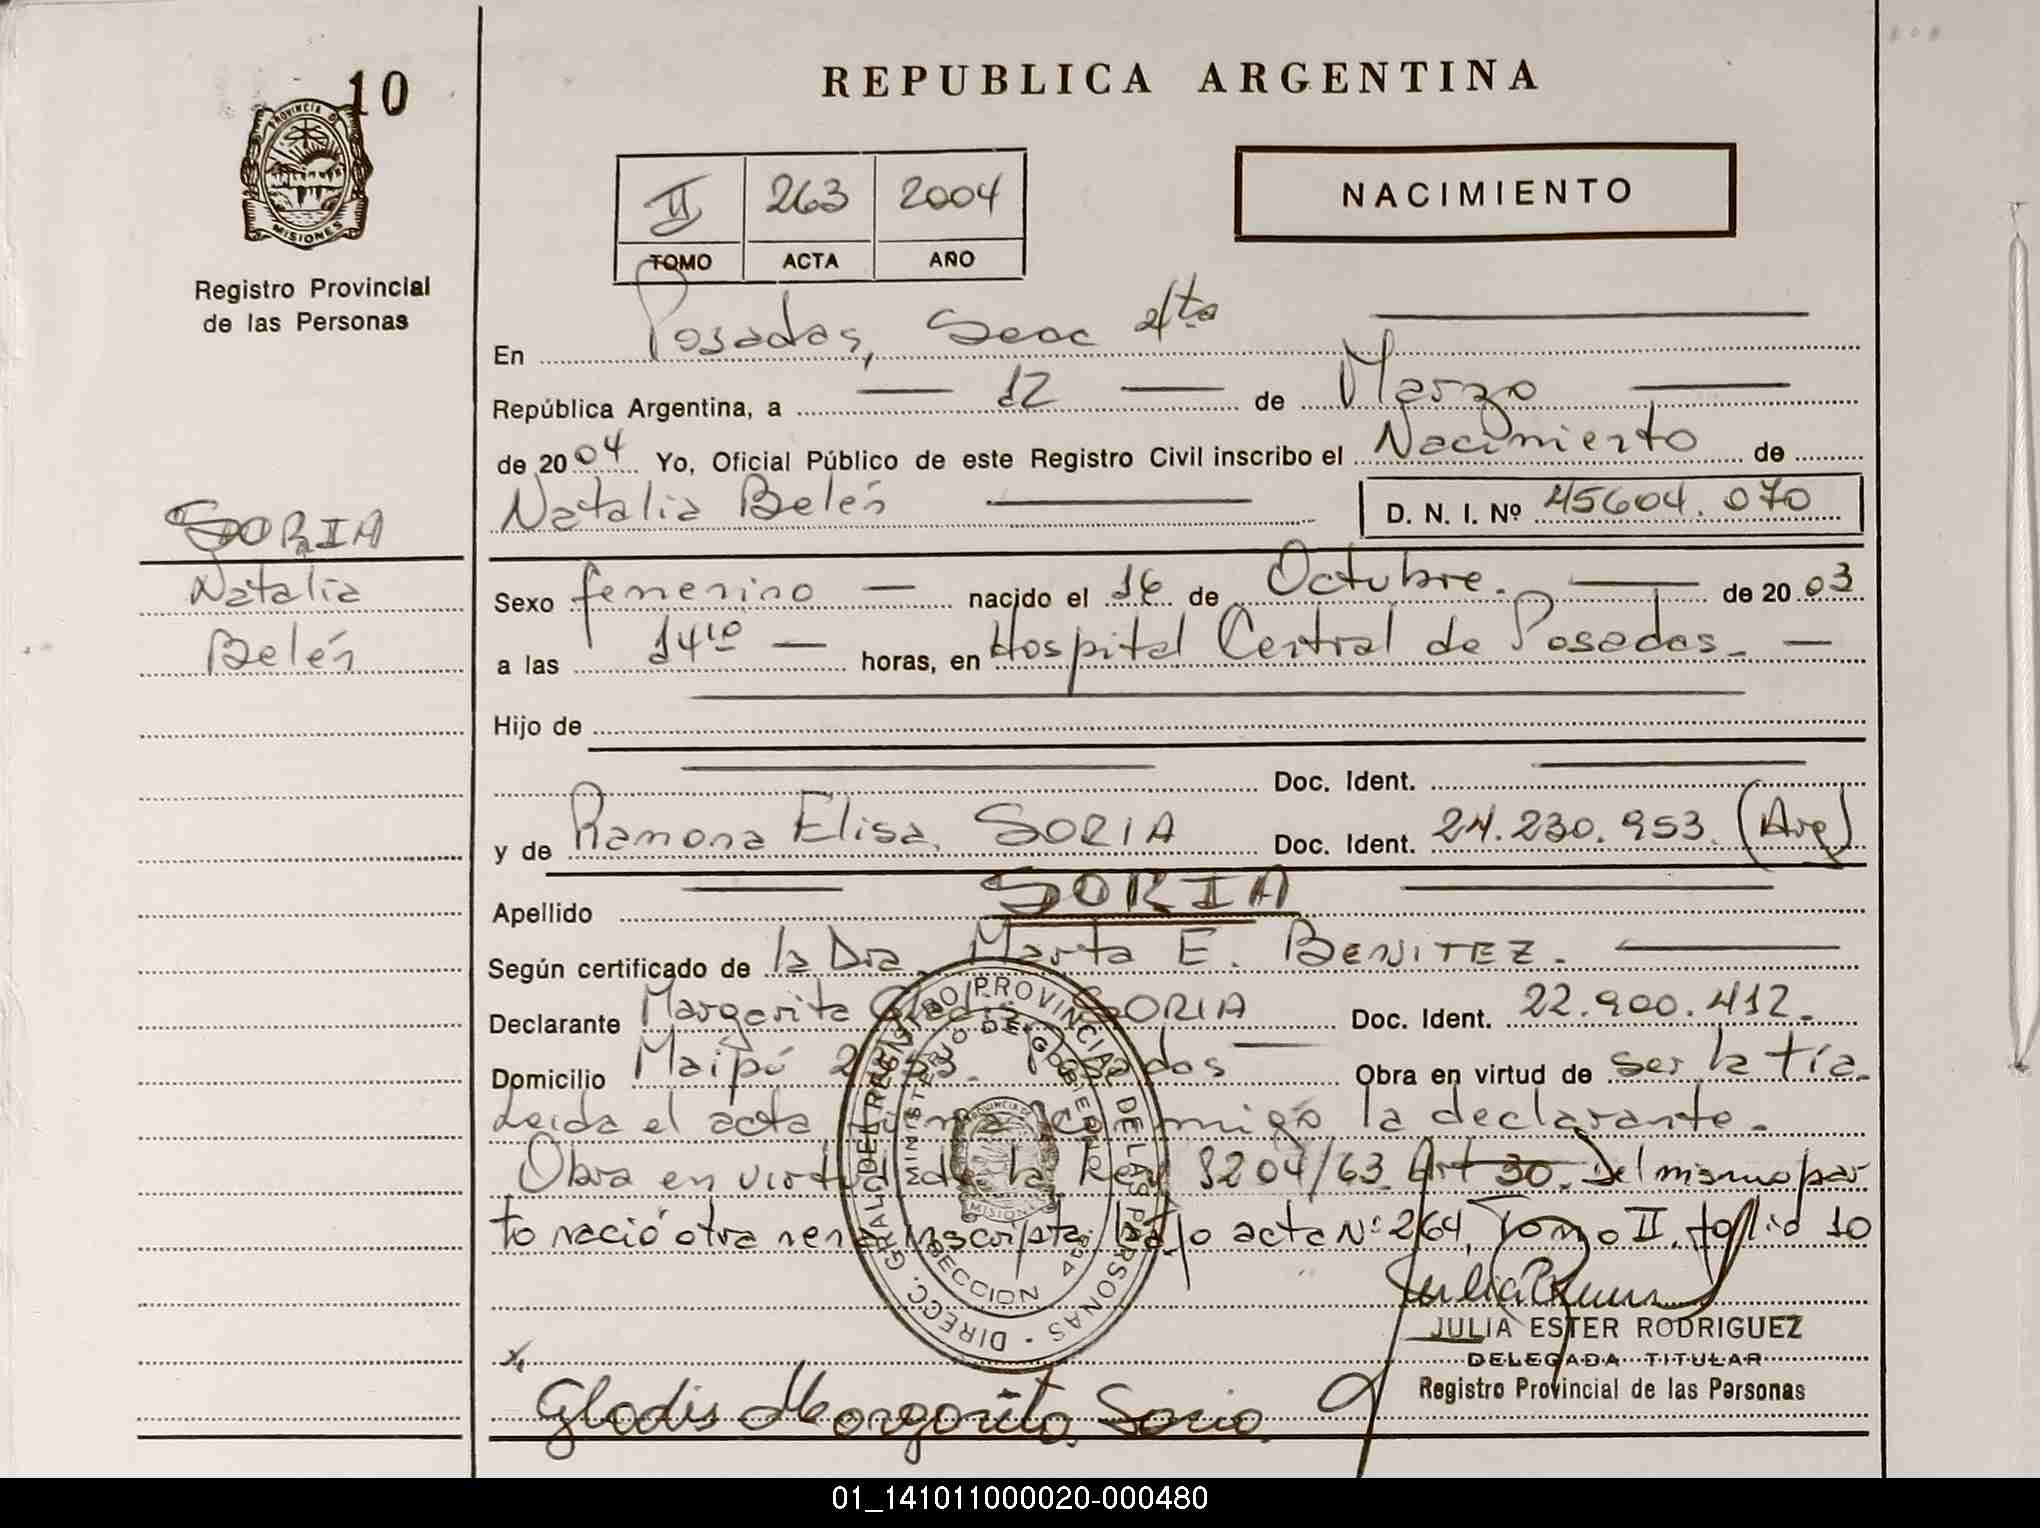 10
PROVINCIA DE
MISIONES
Registro Provincial
de las Personas
SORIA
Natalia
Belén
REPUBLICA ARGENTINA
II 263 2004
TOMO ACTA AÑO
NACIMIENTO
En Posadas, Secc 4ta
República Argentina, a 12 de Marzo
de 2004 Yo, Oficial Público de este Registro Civil inscribo el Nacimiento de
Natalia Belén D. N. I. Nº 45604.070
Sexo femenino nacido el 16 de Octubre. de 2003
a las 14 10 horas, en Hospital Central de Posadas.
Hijo de
Doc. Ident.
y de Ramona Elisa. SORIA Doc. Ident. 24.230.953. (Arg)
Apellido SORIA
Según certificado de la Dra. Marta E. BENITEZ.
Declarante Margarita Gladis SORIA Doc. Ident. 22.900.412.
Domicilio Maipú Posadas Obra en virtud de ser la tía.
Leida el acta firma conmigo la declarante.
Obra en virtud de la Ley 8204/63. Art 30. Del mismo par
to nació otra nena inscripta bajo acta Nº 264, Tomo II, folio 10
DIRECC. GRAL. DEL REGISTRO PROVINCIAL DE LAS PERSONAS
MINISTERIO DE GOBIERNO
PROVINCIA DE
MISIONES
SECCION 4ta.
JULIA ESTER RODRIGUEZ
DELEGADA TITULAR
Registro Provincial de las Personas
Gladis Margarita Soria
01_141011000020-000480